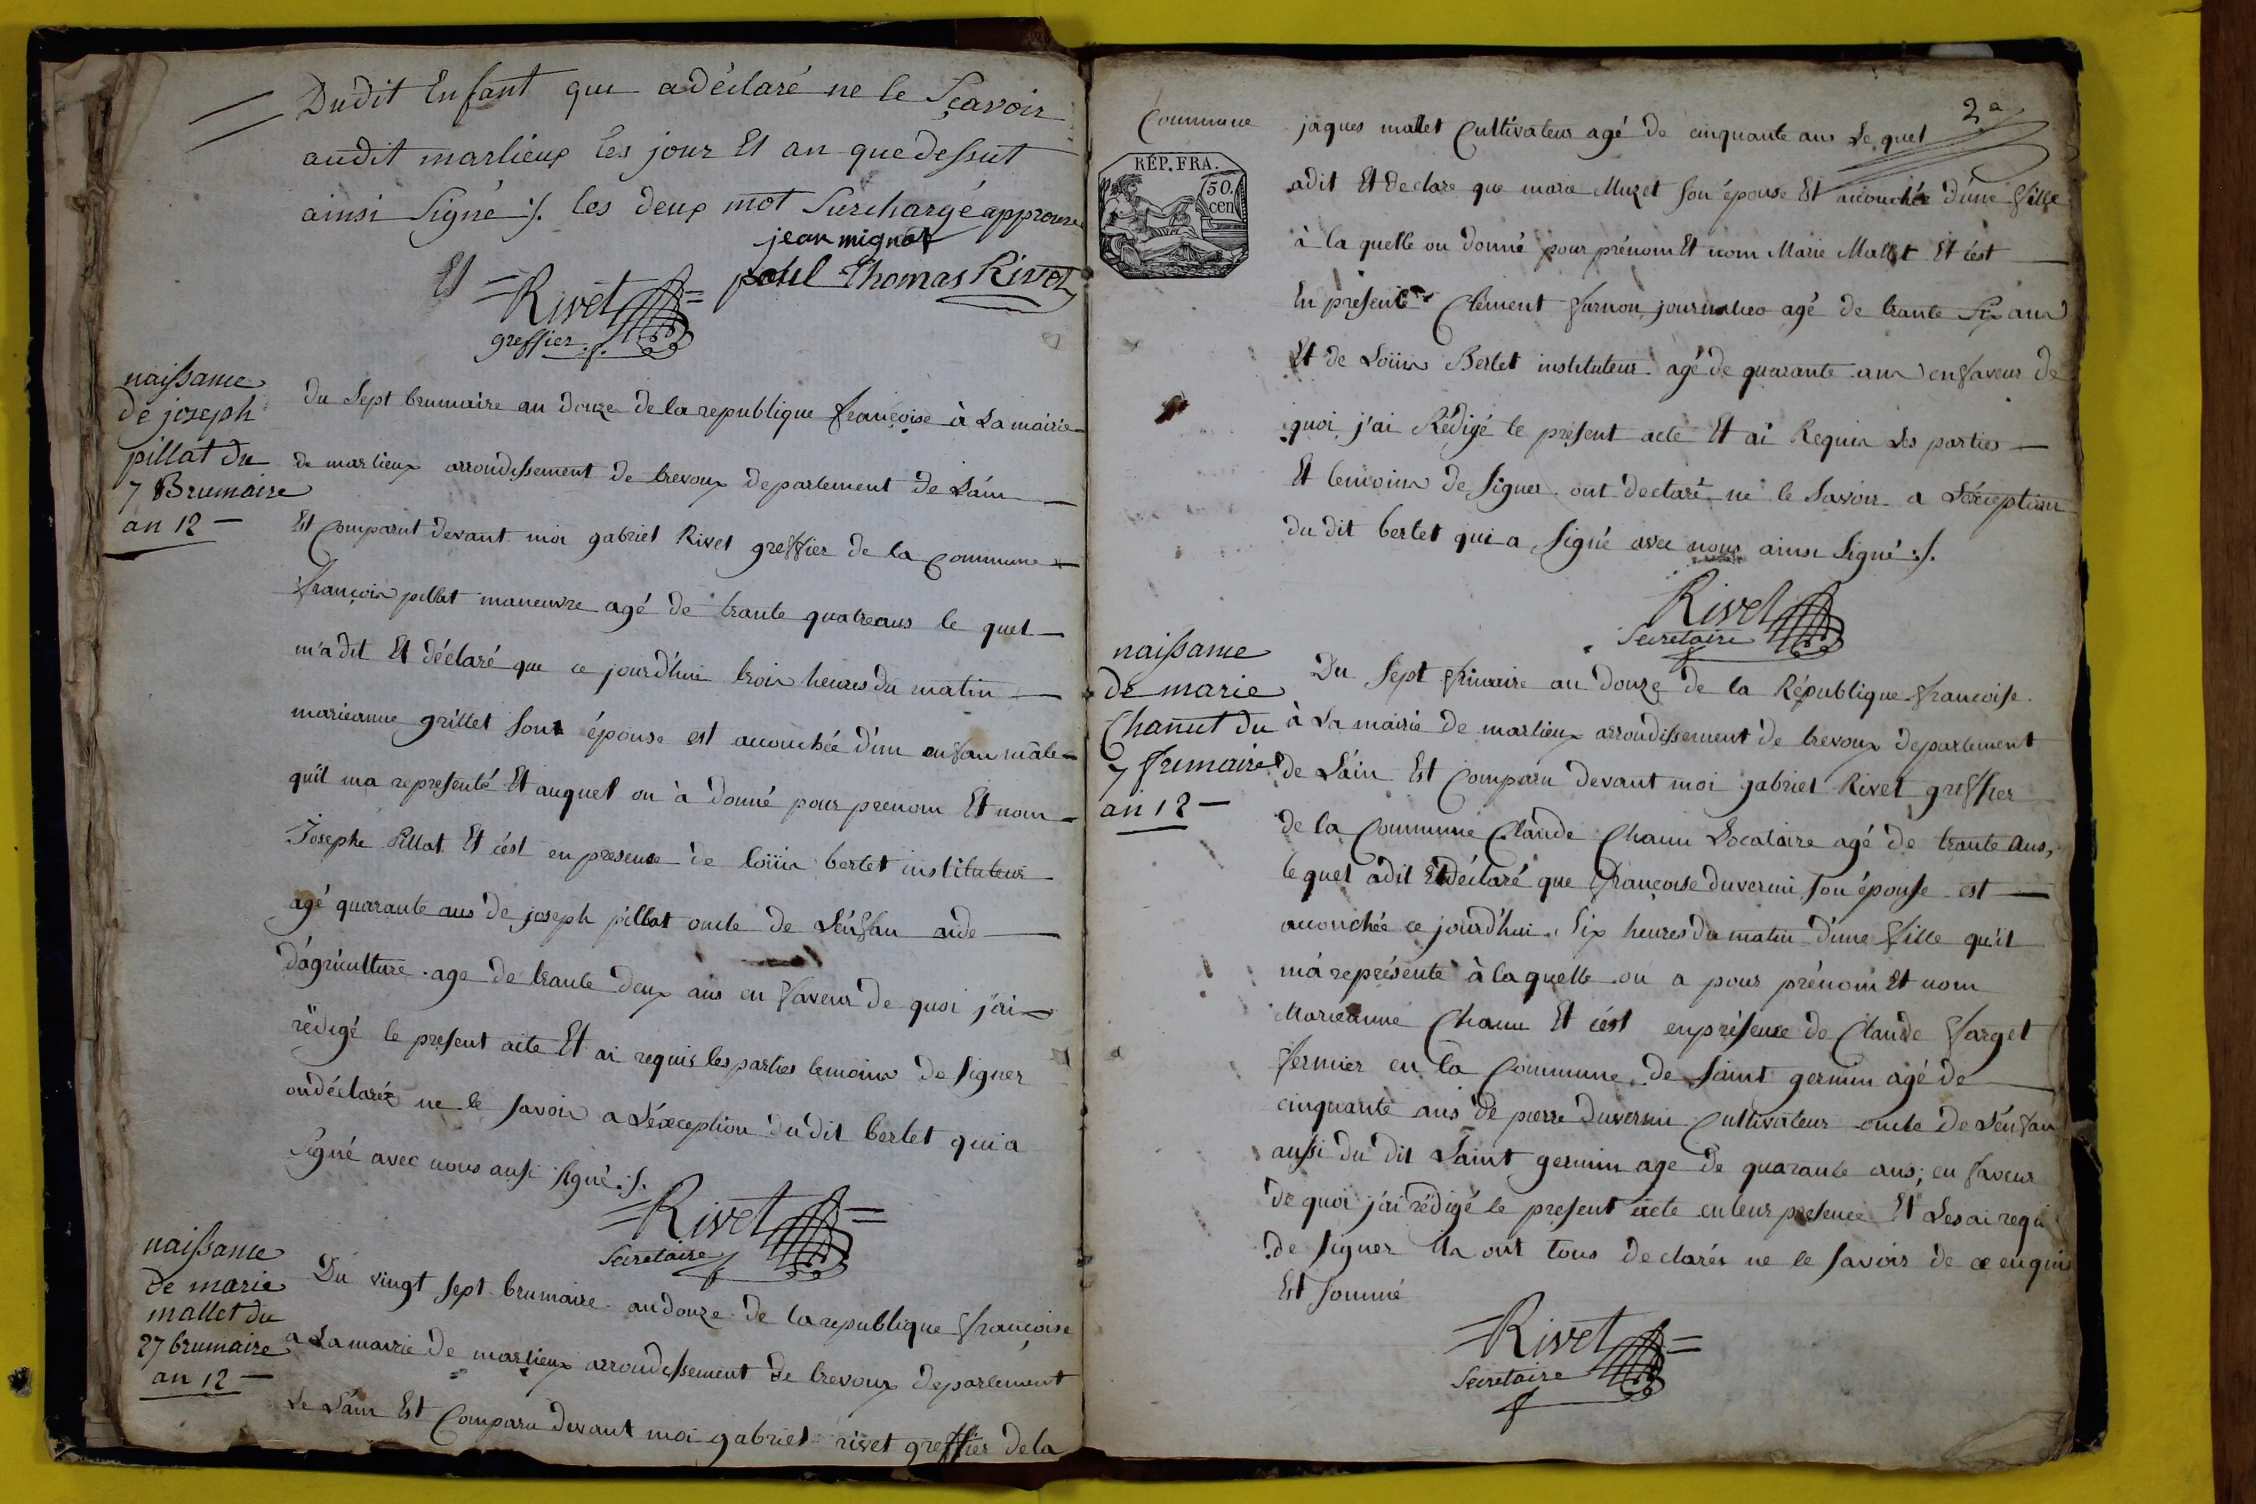 Dudit Enfant qui a déclaré ne le Sçavoir
audit marlieux les jour Et an que dessut
ainsi Signé :/. les deux mot Surchargé approuvé
jean mignot
Et =Rivet= paul Thomas Rivet
greffier
naissance
de joseph
pillat du
7 Brumaire
an 12 —
du Sept brumaire an douze de la republique françoise à La mairie
de marlieux arrondissement de trevoux departement de L'ain
Est Comparut devant moi gabriel Rivet greffier de la Commune
françois pillat maneuvre agé de trante quatre ans le quel
m'a dit Et déclaré que ce jourd'hui trois heures du matin
marieanne grillet Son épouse est accouchée d'un enfan mâle
qu'il ma representé Et auquel on à donné pour prenom Et nom
Josephe Pillat Et c'ést en presence de loüis bertet instituteur
agé quarante ans de joseph pillat oncle de L'énfan aide
d'agriculture age de trante deux ans en faveur de quoi j'ai
rédigé le present acte Et ai requis les parties temoins de Signer
on déclaréz ne le Savoir a L'éxception du dit bertet qui a
Signé avec nous ausi Signé :/.
=Rivet=
Secretaire
naissance
de marie
mallet du
27 brumaire
an 12 —
Du vingt Sept brumaire an douze de la republique françoise
a La mairie de marlieux arrondissement de trevoux departement
de L'ain Est Comparu devant moi gabriel rivet greffier de la
2a
Commune jaques mallet Cultivateur agé de cinquante ans Le quel
RÉP. FRA.
50.
cen
a dit Et declare que marie Muzet Son épouse Est accouchée d'une fille
à la quelle on donné pour prénom Et nom Marie Mallet Et c'ést
En présence Clement furnon journalier agé de trante Six ans
Et de Loüis Bertet instituteur agé de quarante ans en faveur de
quoi j'ai Rédigé le présent acte Et ai Requis Les parties
Et temoins de Signer ont declaré ne le Savoir a L'éxception
du dit bertet qui a Signé avec nous ainsi Signé :/.
Rivet
Secretaire
naissance
de marie
Chanut du
7 frimaire
an 12 —
Du Sept frimaire an douze de la République françoise
à La mairie de marlieux arrondissement de trevoux departement
de L'ain Est Comparu devant moi gabriel Rivet greffier
de la Commune Claude Chanu Locataire agé de trante ans,
le quel a dit Et déclaré que françoise duverni Son épouse est
accouchée ce jourd'hui Six heures du matin d'une fille qu'il
m'a représenté à laquelle on a pour prénom Et nom
Marieanne Chanu Et c'ést en présence de Claude farget
fermier en la Commune de Saint germin agé de
cinquante ans de pierre duverni Cultivateur oncle de L'énfan
aussi du dit Saint germin age de quarante ans; en faveur
de quoi j'ai rédigé le present acte en leur presence Et Les ai requi
de Signer ils ont tous declarés ne le Savoir de ce enquis
Est Sommé
=Rivet=
Secretaire